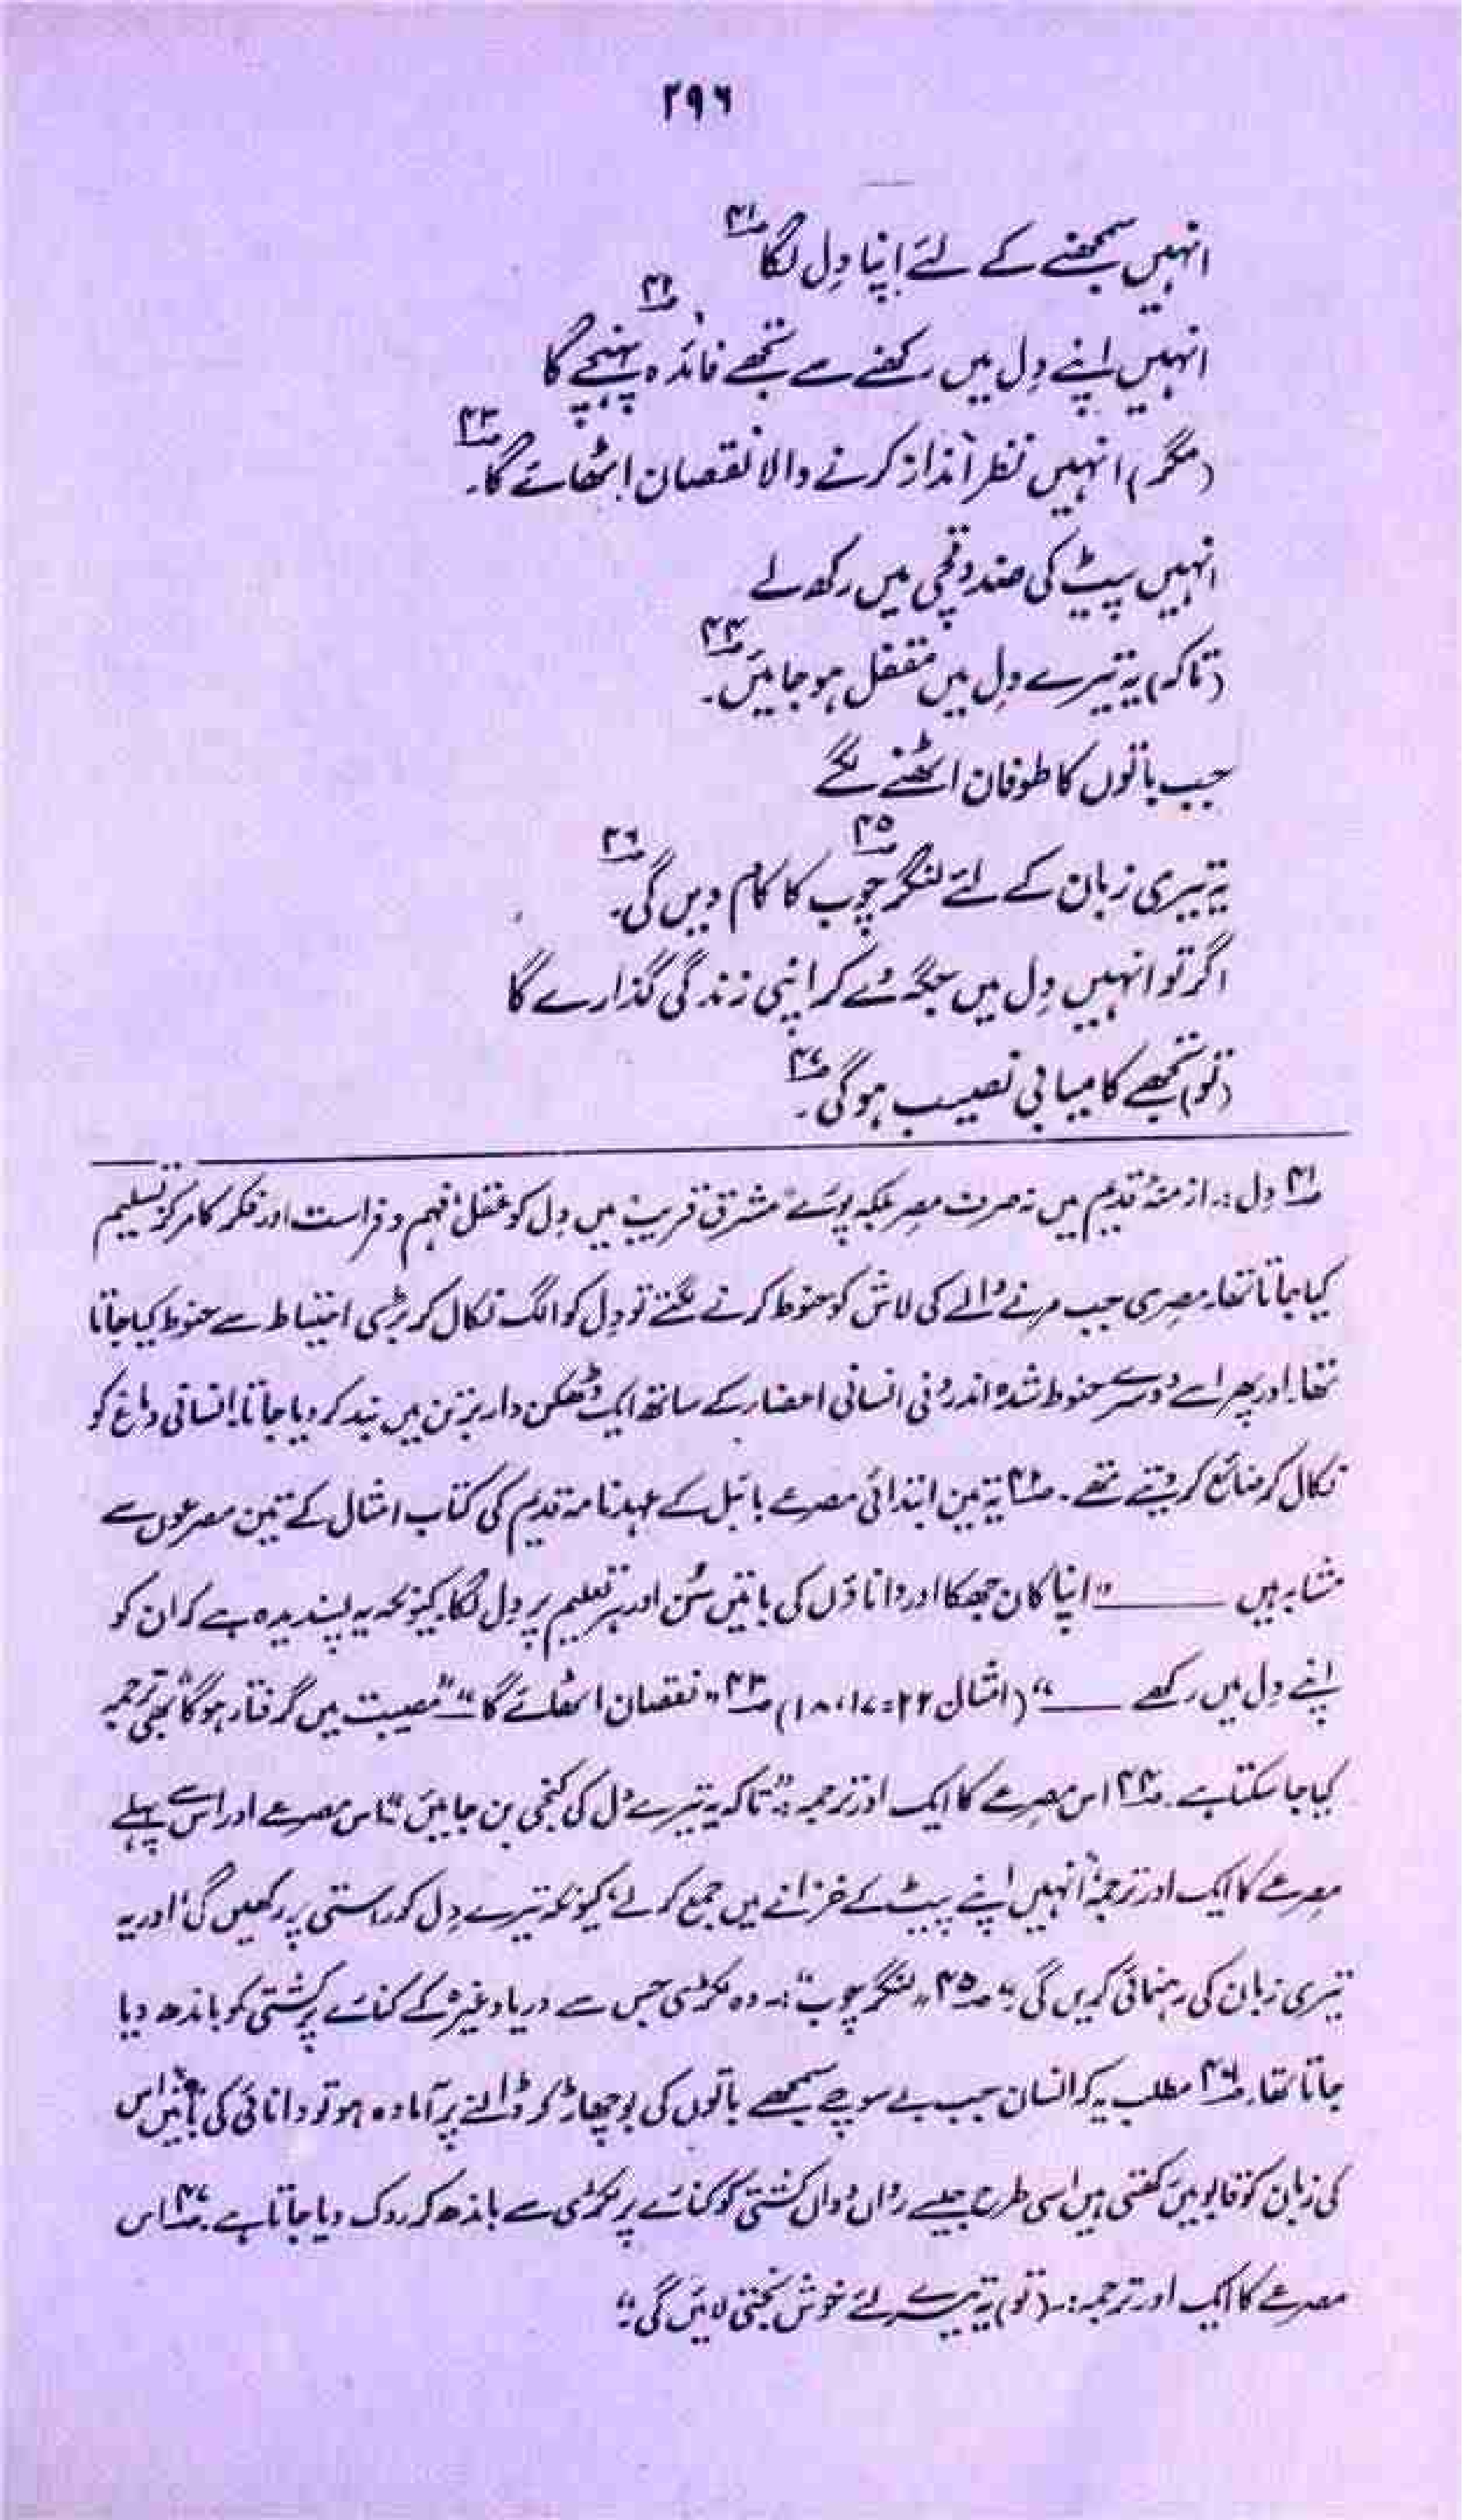 ۲۹۶
انہیں سمجھنے کے لئے اپنا دِل لگا ؎۴۱
انہیں اپنے دِل میں رکھنے سے تجھے فائدہ پہنچے گا ؎۴۲
(مگر) انہیں نظر انداز کرنے والا نقصان اٹھائے گا۔ ؎۴۳
انہیں پیٹ کی صندوقچی میں رکھ لے
(تاکہ) یہ تیرے دِل میں مقفل ہو جائیں۔ ؎۴۴
جب باتوں کا طوفان اٹھنے لگے
یہ تیری زبان کے لئے لنگر چوب ؎۴۵ کا کام دیں گی۔ ؎۴۶
اگر تو انہیں دِل میں جگہ دے کر اپنی زندگی گذارے گا
(تو) تجھے کامیابی نصیب ہوگی۔ ؎۴۷
؎۴۱ دِل :۔ ازمنۂ قدیم میں نہ صرف مصر بلکہ پورے مشرق قریب میں دِل کو عقل، فہم و فراست اور فکر کا مرکز تسلیم
کیا جاتا تھا۔ مصری جب مرنے والے کی لاش کو حنوط کرنے لگتے تو دِل کو الگ نکال کر بڑی احتیاط سے حنوط کیا جاتا
تھا۔ اور پھر اسے دوسرے حنوط شدہ اندرونی انسانی اعضاء کے ساتھ ایک ڈھکن دار برتن میں بند کر دیا جاتا۔ انسانی دماغ کو
نکال کر ضائع کر دیتے تھے۔ ؎۴۲ یہ تین ابتدائی مصرعے بائبل کے عہد نامہ قدیم کی کتاب امثال کے تین مصرعوں سے
مشابہ ہیں ——— "اپنا کان جھکا اور داناؤں کی باتیں سُن اور تعلیم پر دِل لگا کیونکہ یہ پسندیدہ ہے کہ ان کو
اپنے دِل میں رکھے ——" (امثال ۲۲=۱۷، ۱۸) ؎۴۳ "نقصان اٹھائے گا"—"مصیبت میں گرفتار ہوگا" بھی ترجمہ
کیا جا سکتا ہے۔ ؎۴۴ اس مصرعے کا ایک اور ترجمہ :۔ "تاکہ یہ تیرے دل کی کنجی بن جائیں" اس مصرعے اور اس سے پہلے
مصرعے کا ایک اور ترجمہ "انہیں اپنے پیٹ کے خزانے میں جمع کر لے، کیونکہ تیرے دِل کو راستی پر رکھیں گی، اور یہ
تیری زبان کی رہنمائی کریں گی"۔ ؎۴۵ "لنگر چوب" :۔ وہ لکڑی جس سے دریا وغیرہ کے کنارے پر کشتی کو باندھ دیا
جاتا تھا۔ ؎۴۶ مطلب یہ کہ انسان جب بے سوچے سمجھے باتوں کی بوچھاڑ کر ڈالنے پر آمادہ ہو تو دانائی کی باتیں اس
کی زبان کو قابو میں رکھتی ہیں اسی طرح جیسے رواں دواں کشتی کو کنارے پر لکڑی سے باندھ کر روک دیا جاتا ہے۔ ؎۴۷ اس
مصرعے کا ایک اور ترجمہ :۔ (تو) یہ تیرے لئے خوش بختی لائیں گی۔"